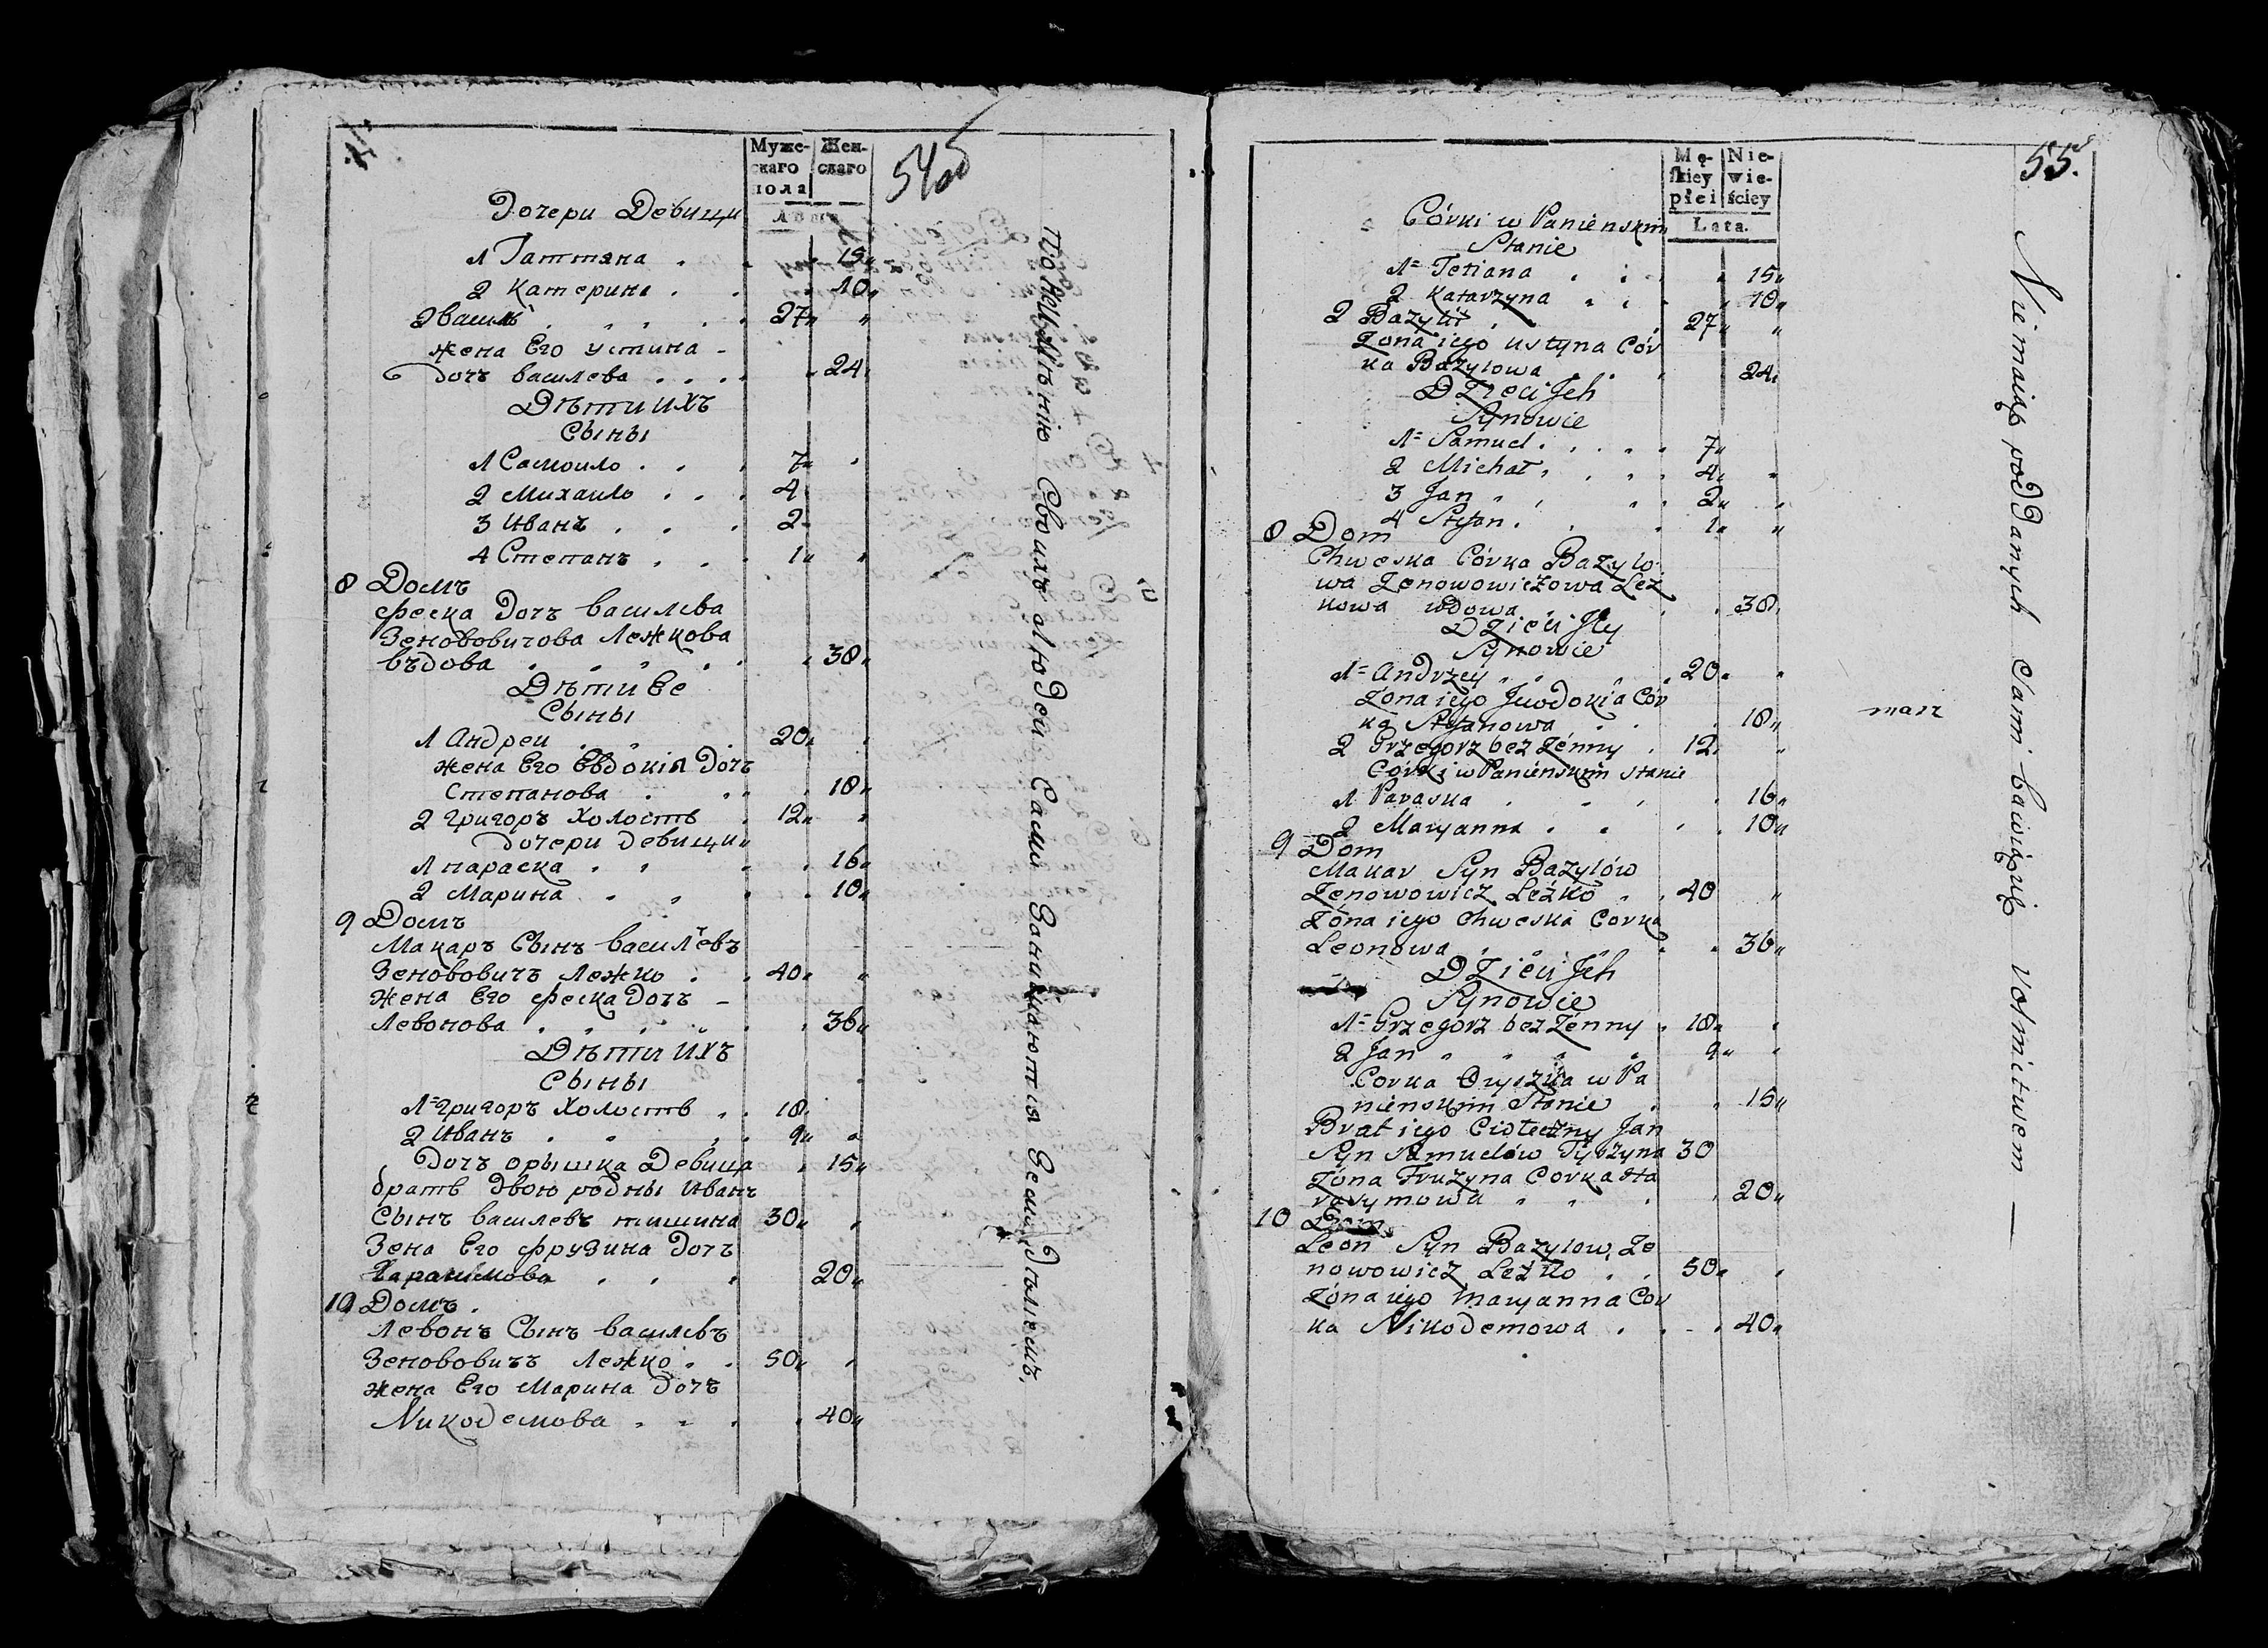 Муже-
скаго
пола
Жен-
скаго
Лѣты
54об
Дочери Девици
1 Таттяна . . . 15"
2 Катерина . . . 10"
2 василь . . . . . 27" "
жена Его устина -
дочъ василева . . . . 24"
Дѣти ихъ
Сыны
1 Самоило . . . 7" "
2 Михаило . . . 4
3 Иванъ . . . 2
4 Степанъ . . . 1" "
8 Домъ
феска дочъ василева
Зеновович​ова Лежкова
въдова . . . . . 38"
Дѣти Ее
Сыны
1 Андреи . . . 20" "
жена Его Евдокія дочъ
Степанова . . . 18"
2 григоръ Холостъ . 12" "
дочери девици"
1 параска . . . 16"
2 Марина . . . 10"
9 Домъ
Макаръ Сынъ василевъ
Зенововичъ Лежко . . 40" "
жена Его феска дочъ -
Левонова . . . . . 36"
Дѣти Ихъ
Сыны
1 григоръ Холостъ . . 18"
2 Иванъ . . . . 9" "
дочъ орышка Девица . 15"
братъ двою родны Иванъ
Сынъ василевъ тишина 30" "
Зена Его фрузина дочъ
Харапимова . . . 20"
10 Домъ .
Левонъ Сынъ василевъ
Зенововичъ Лежко . . 50" "
жена Его Марина дочъ
Никодемова . . . . 40"
По неимѣнию Своихъ людей Сами Занимаются Земледѣлиемъ.
Mę-
skiey
płci
Nie-
wie-
ściey
Lata.
55.
Córki w Panienskim
Stanie
1 Tetiana . . . . 15"
2 Katarzyna . . . 10"
2 Bazyli . . 27" "
Żona iego ustyna Cór
ka Bazylowa . . . 24"
Dzieci Jch
Synowie
1 Samuel . . . . . 7"
2 Michał . . . . 4" "
3 Jan . . . . 2" "
4 Stefan . . . 1" "
8 Dom
Chweska Córka Bazylo
wa Zenowowiczowa Leż
kowa wdowa . . . 38"
Dzieci Jey
Synowie
1 Andrzey . . . 20" "
Żona iego Jewdokia Cór
ka Stefanowa . . . 18"
2 Grzegorz bez Żenny . 12" "
Córki w Panienskim stanie
1 Paraska . . . . . 16"
2 Maryanna . . . . 10"
9 Dom
Makar Syn Bazylów
Zenowowicz Leżko . . 40 "
Żona iego Chweska Corka
Leonowa . . . . . 36"
Dzieci Jch
Synowie
1 Grzegorz bez Żenny . 18" "
2 Jan . . . . 9" "
Corka Oryszka w Pa
nienskim Stanie . . 15"
Brat iego Cioteczny Jan
Syn Samuelów Tyszyna 30
Żona Fruzyna Corka Ha
rasymowa . . . . 20"
10 Dom
Leon Syn Bazylow, Ze
nowowicz Leżko . . 50" "
Żona iego Maryanna Cor
ka Nikodemowa . . . 40"
Niemaiąc poddanych Sami bawią się Rolnictwem —